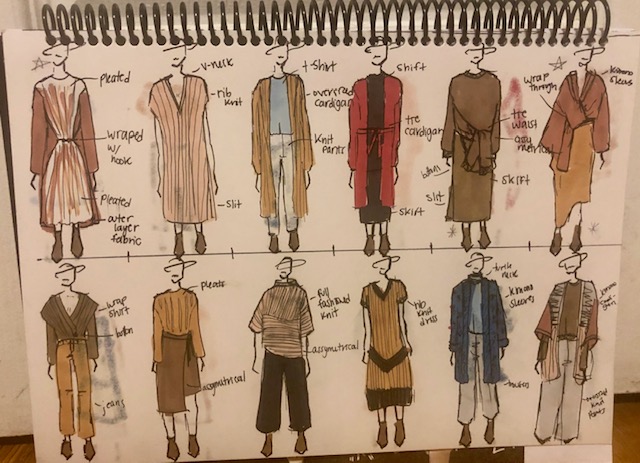 pleated
wraped
w/
hook
pleated
outer
layer
fabric
V-neck
rib
knit
slit
t-shirt
oversized
cardigan
Knit
pants
Shift
tie
cardigan
skirt
tie
waist
assy
metrical
slit
skirt
wrap
through
kimono
wrap
shirt
button
jeans
pleats
assymetrical
full
fashioned
knit
assymetrical
rib
knit
dress
turtle
neck
kimono
sleeves
knit
pants